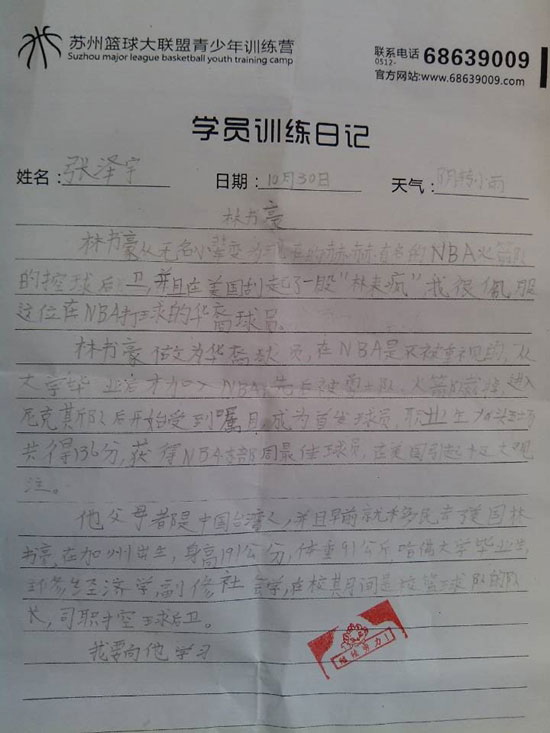 苏州篮球大联盟青少年训练营
Suzhou major league basketball youth training camp
联系电话 0512- 68639009
官方网站:www.68639009.com
学员训练日记
姓名: 张泽宇 日期: 10月30日 天气: 阴转小雨
林书豪
林书豪从无名小辈变为现在的赫赫有名的NBA火箭队
的控球后卫,并且在美国刮起了一股“林来疯”我很佩服
这位在NBA打球的华裔球员。
林书豪做为华裔球员,在NBA是不被重视的,从
大学毕业后才加入NBA,先后被勇士队、火箭队裁掉,进入
尼克斯队后开始受到嘱目,成为首发球员,职业生
共得136分,获得NBA东部周最佳球员,在美国引起极大观
注。
他父母都是中国台湾人,并且早前就移民去了美国林
书豪,在加州出生,身高191公分,体重91公斤哈佛大学毕业生
主修经济学副修社会学,在校其间是校篮球队的队
长,司职控球后卫。
我要向他学习
继续努力!